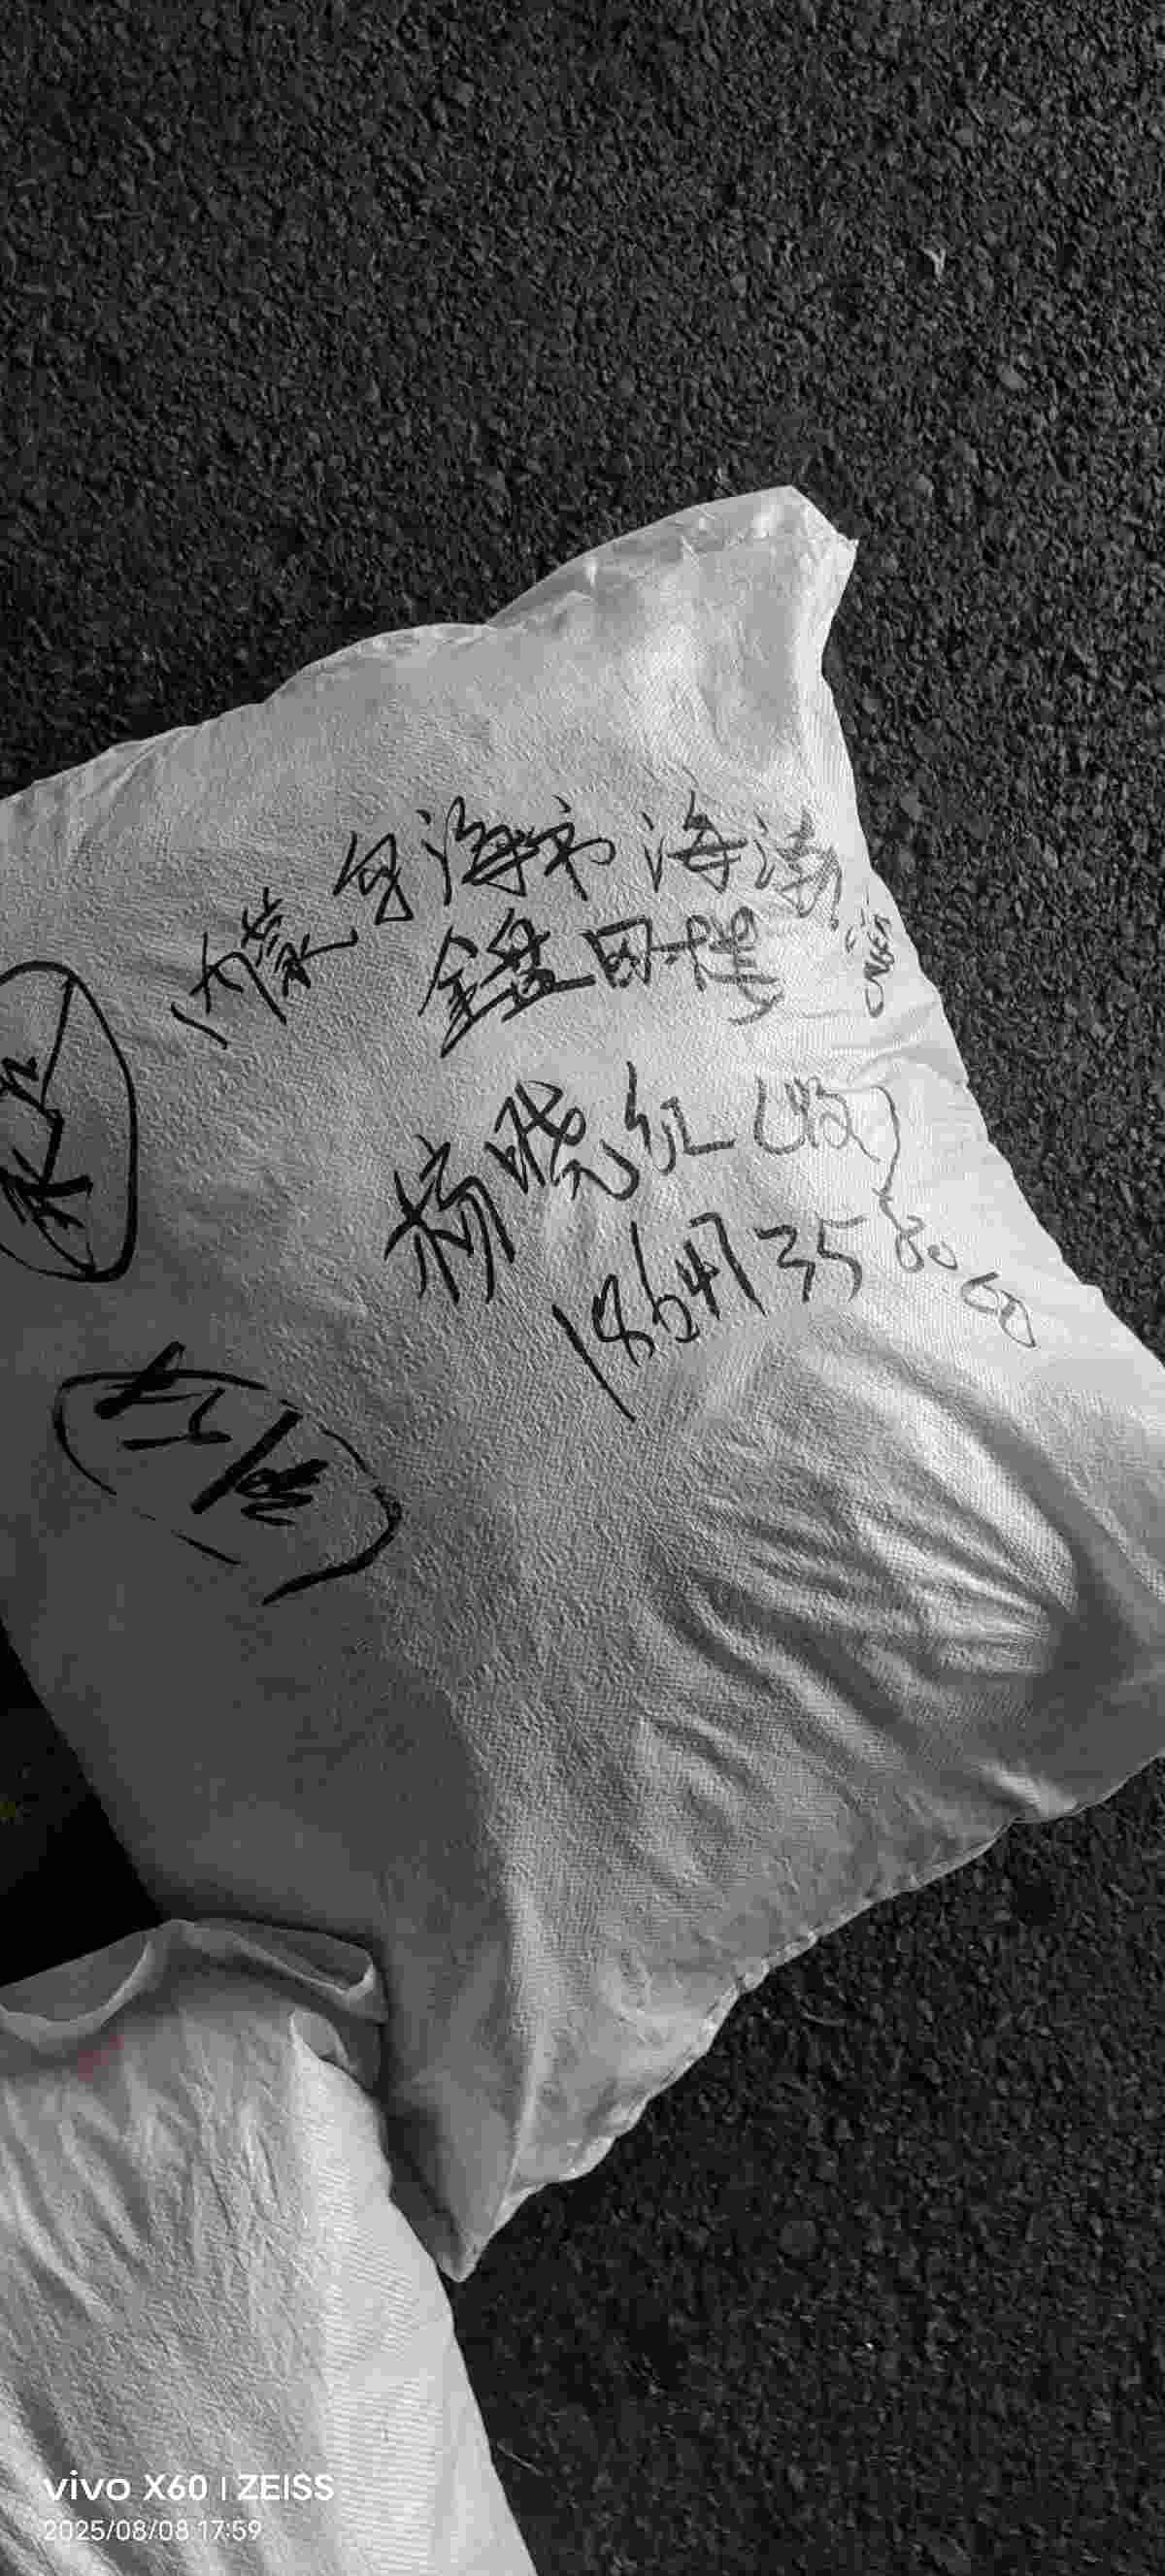 内蒙乌海市海渤湾区
鑫盛田楼
杨晓红(收)
18647358060
红
vivo X60 | ZEISS
2025/08/08 17:59